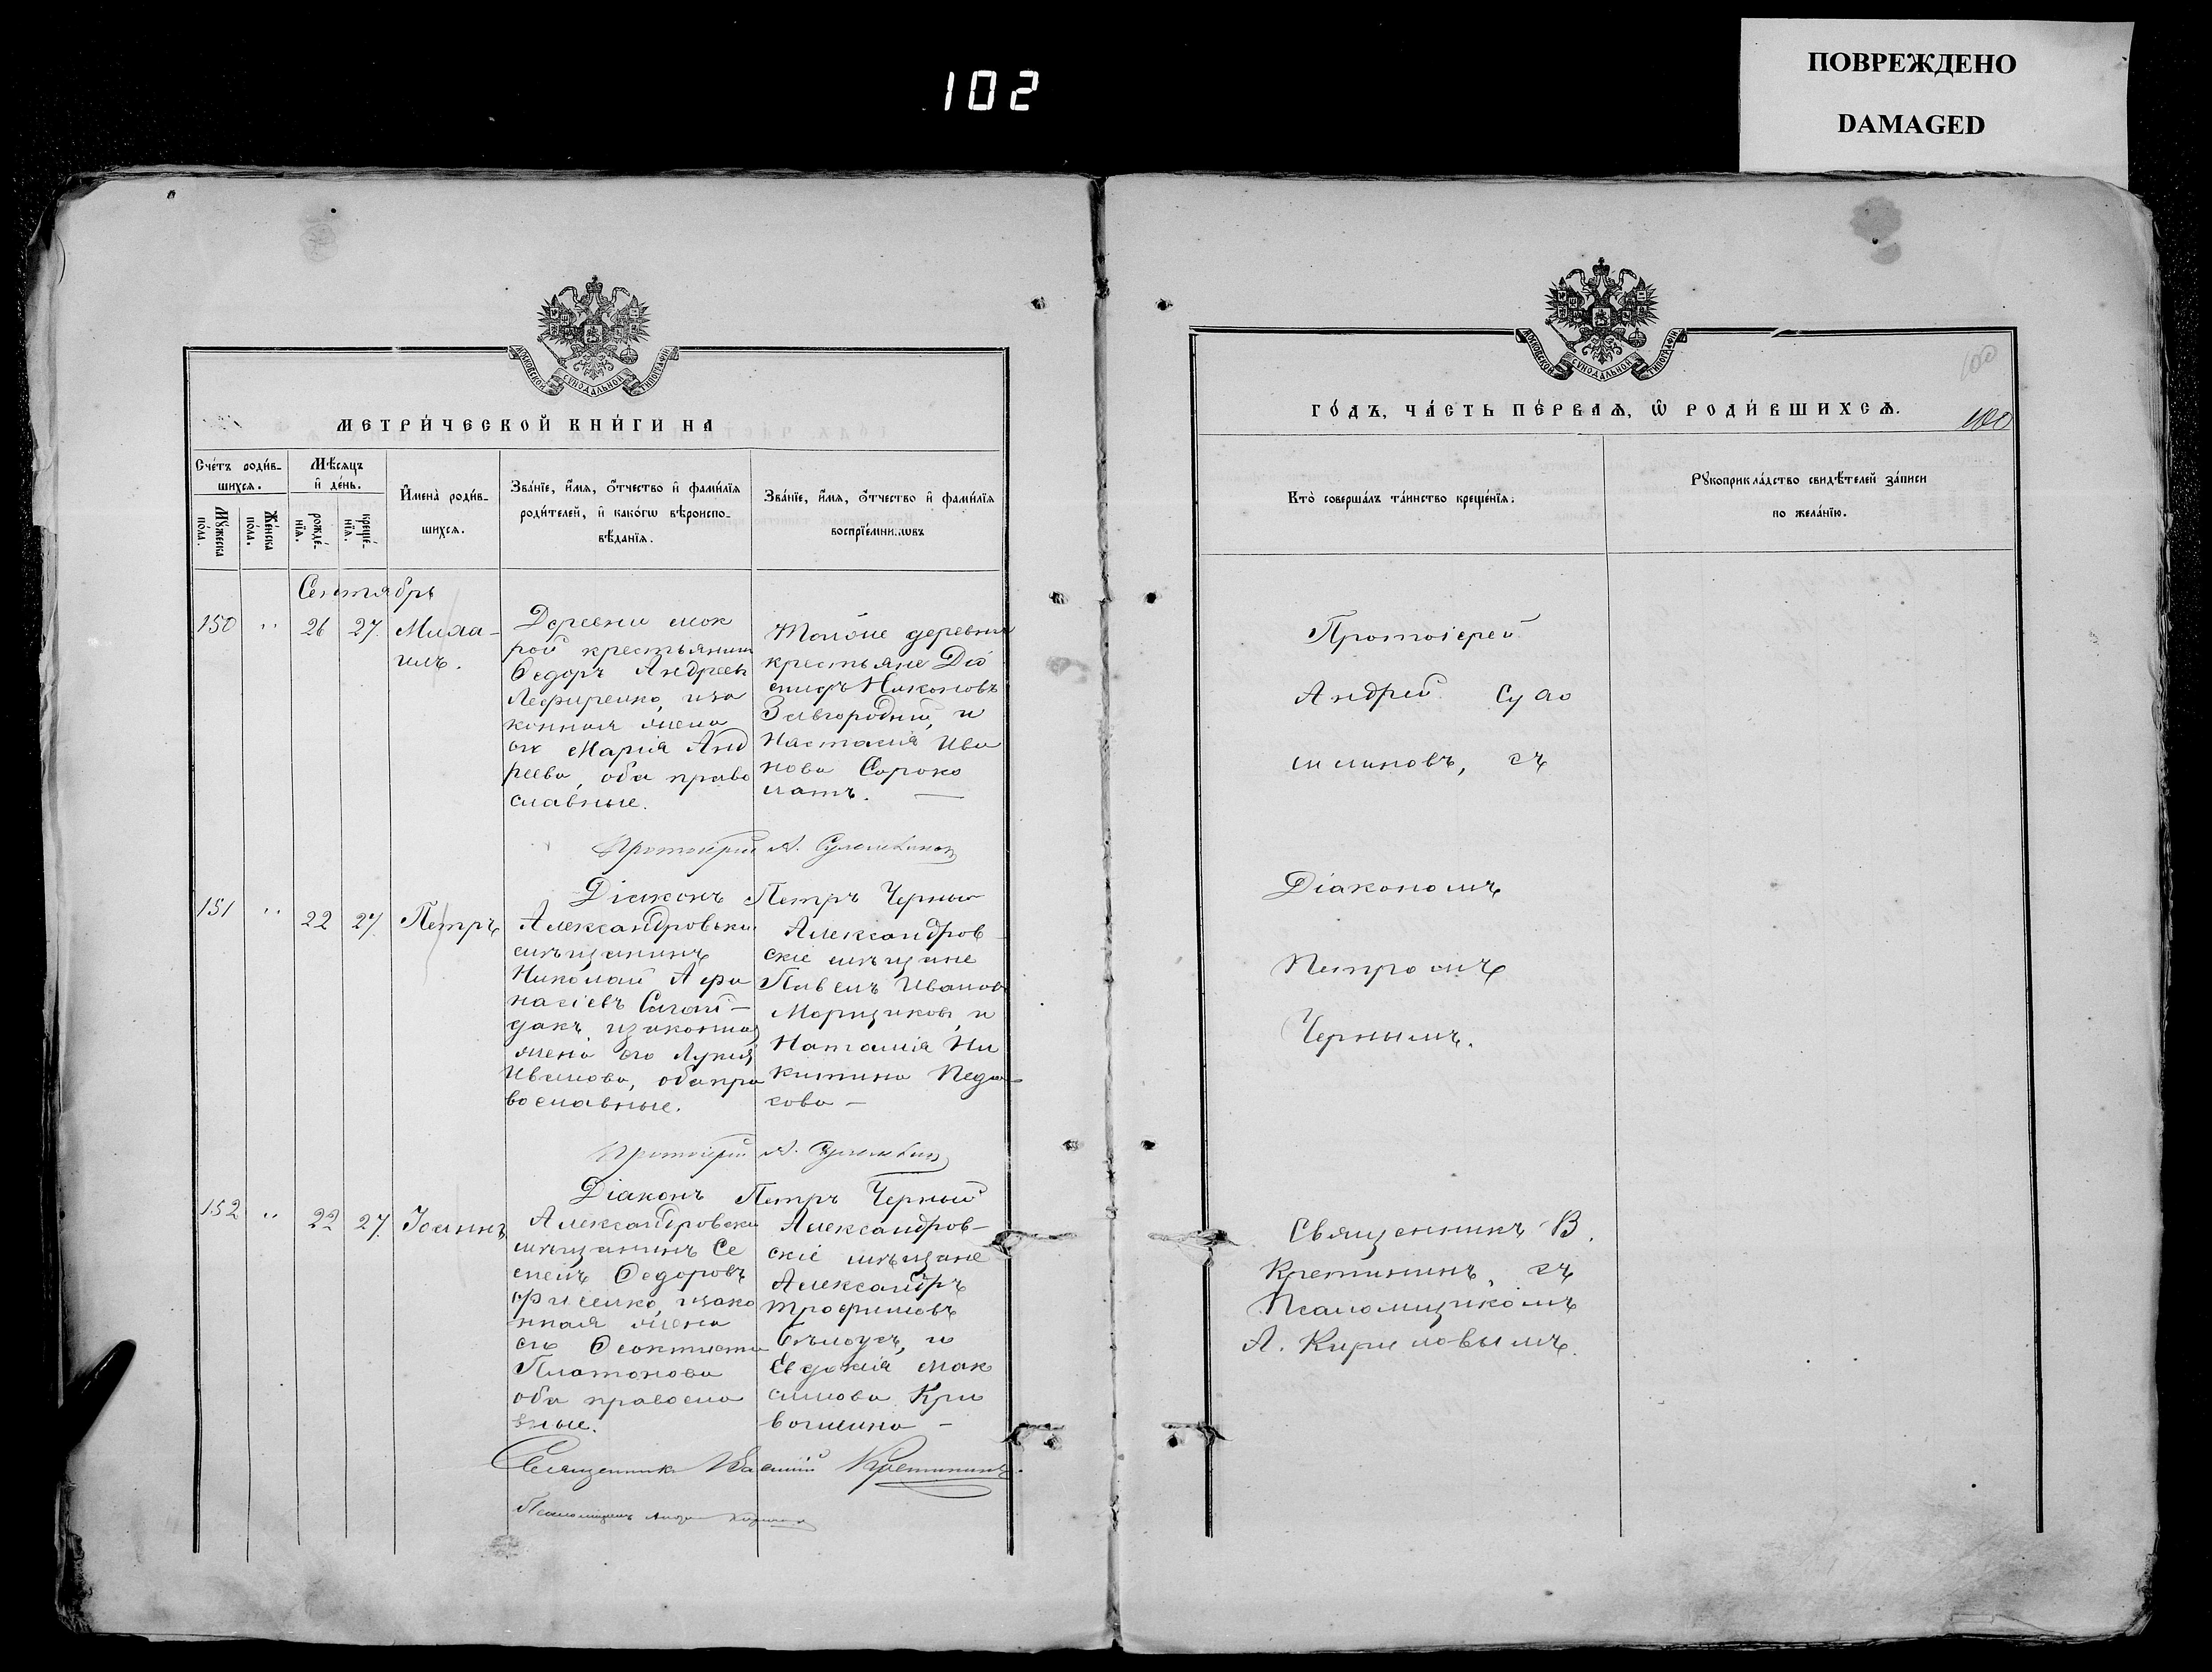 102
ПОВРЕЖДЕНО
DAMAGED
МЕТРИ́ЧЕСКОЙ КНИ́ГИ НА
Сче́тъ роди́в-
шихсѧ.
Мѣ́сяцъ
и҆ де́нь.
Мꙋ́жеска
по́ла.
Же́нска
по́ла.
рожде́-
нїѧ.
креще́-
нїѧ.
И҆мена̀ роди́в-
шихсѧ.
Зва́нїе, и҆́мѧ, ѻ҆́тчество и҆ фами́лїѧ
роди́телей, и҆ како́гѡ вѣроиспо-
вѣ́данїѧ.
Зва́нїе, и҆́мѧ, ѻ҆́тчество и҆ фами́лїѧ
воспрїе́мниковъ
Сентябрь
150 " 26 27 Миха-
илъ.
Деревни Мок
рой крестьянинъ
Ѳедоръ Андреевъ
, и за
конная жена
его Марія Анд
реева, оба право
славные.
Тойже деревни
крестьяне Діо
нисъ Никоновъ
Завгородній, и
Настасия Ива
нова Сороко
латъ. —
Протоіерей А. Сулименов
Діаконъ Петръ Черный
151 " 22 27 Петръ
Александровскій
мѣщанинъ
Николай Афа
насіевъ Сагай-
дакъ, и законная
жена его Лукия
Иванова, оба пра
вославные.
Александров-
скіе мѣщане
Павелъ Иванов
Морщиковъ, и
Наталия Ни
китина Педа-
кова —
Протоіерей А.
Діаконъ Петръ Черный
152 " 22 27 Іоаннъ
Александровскій
мѣщанинъ Се
менъ Ѳедоровъ
, и зако
нная жена
его Ѳеоктиста
Платонова
оба правосла
вные.
Александров-
скіе мѣщане
Александръ
Трофимовъ
Бѣлоусъ, и
Евдокия Мак
симова Кри
вошеина —
Священникъ Василий Кретининъ.
Псаломщикъ Андрей
ГО́ДЪ, ЧА́СТЬ ПЕ́РВАѦ, Ѡ҆ РОДИ́ВШИХСѦ.
100
100
Кто̀ соверша́лъ та́инство креще́нїѧ.
Рꙋкоприкла́дство свидѣ́телей за́писи
по жела́нїю.
Протоіерей
Андрей
съ
Діакономъ
Петромъ
Чернымъ.
Священникъ В.
Кретининъ, съ
Псаломщикомъ
А. Кириловымъ.